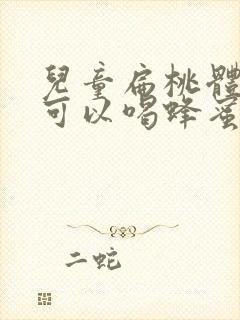 兒童扁桃體
可以喝蜂蜜
二蛇